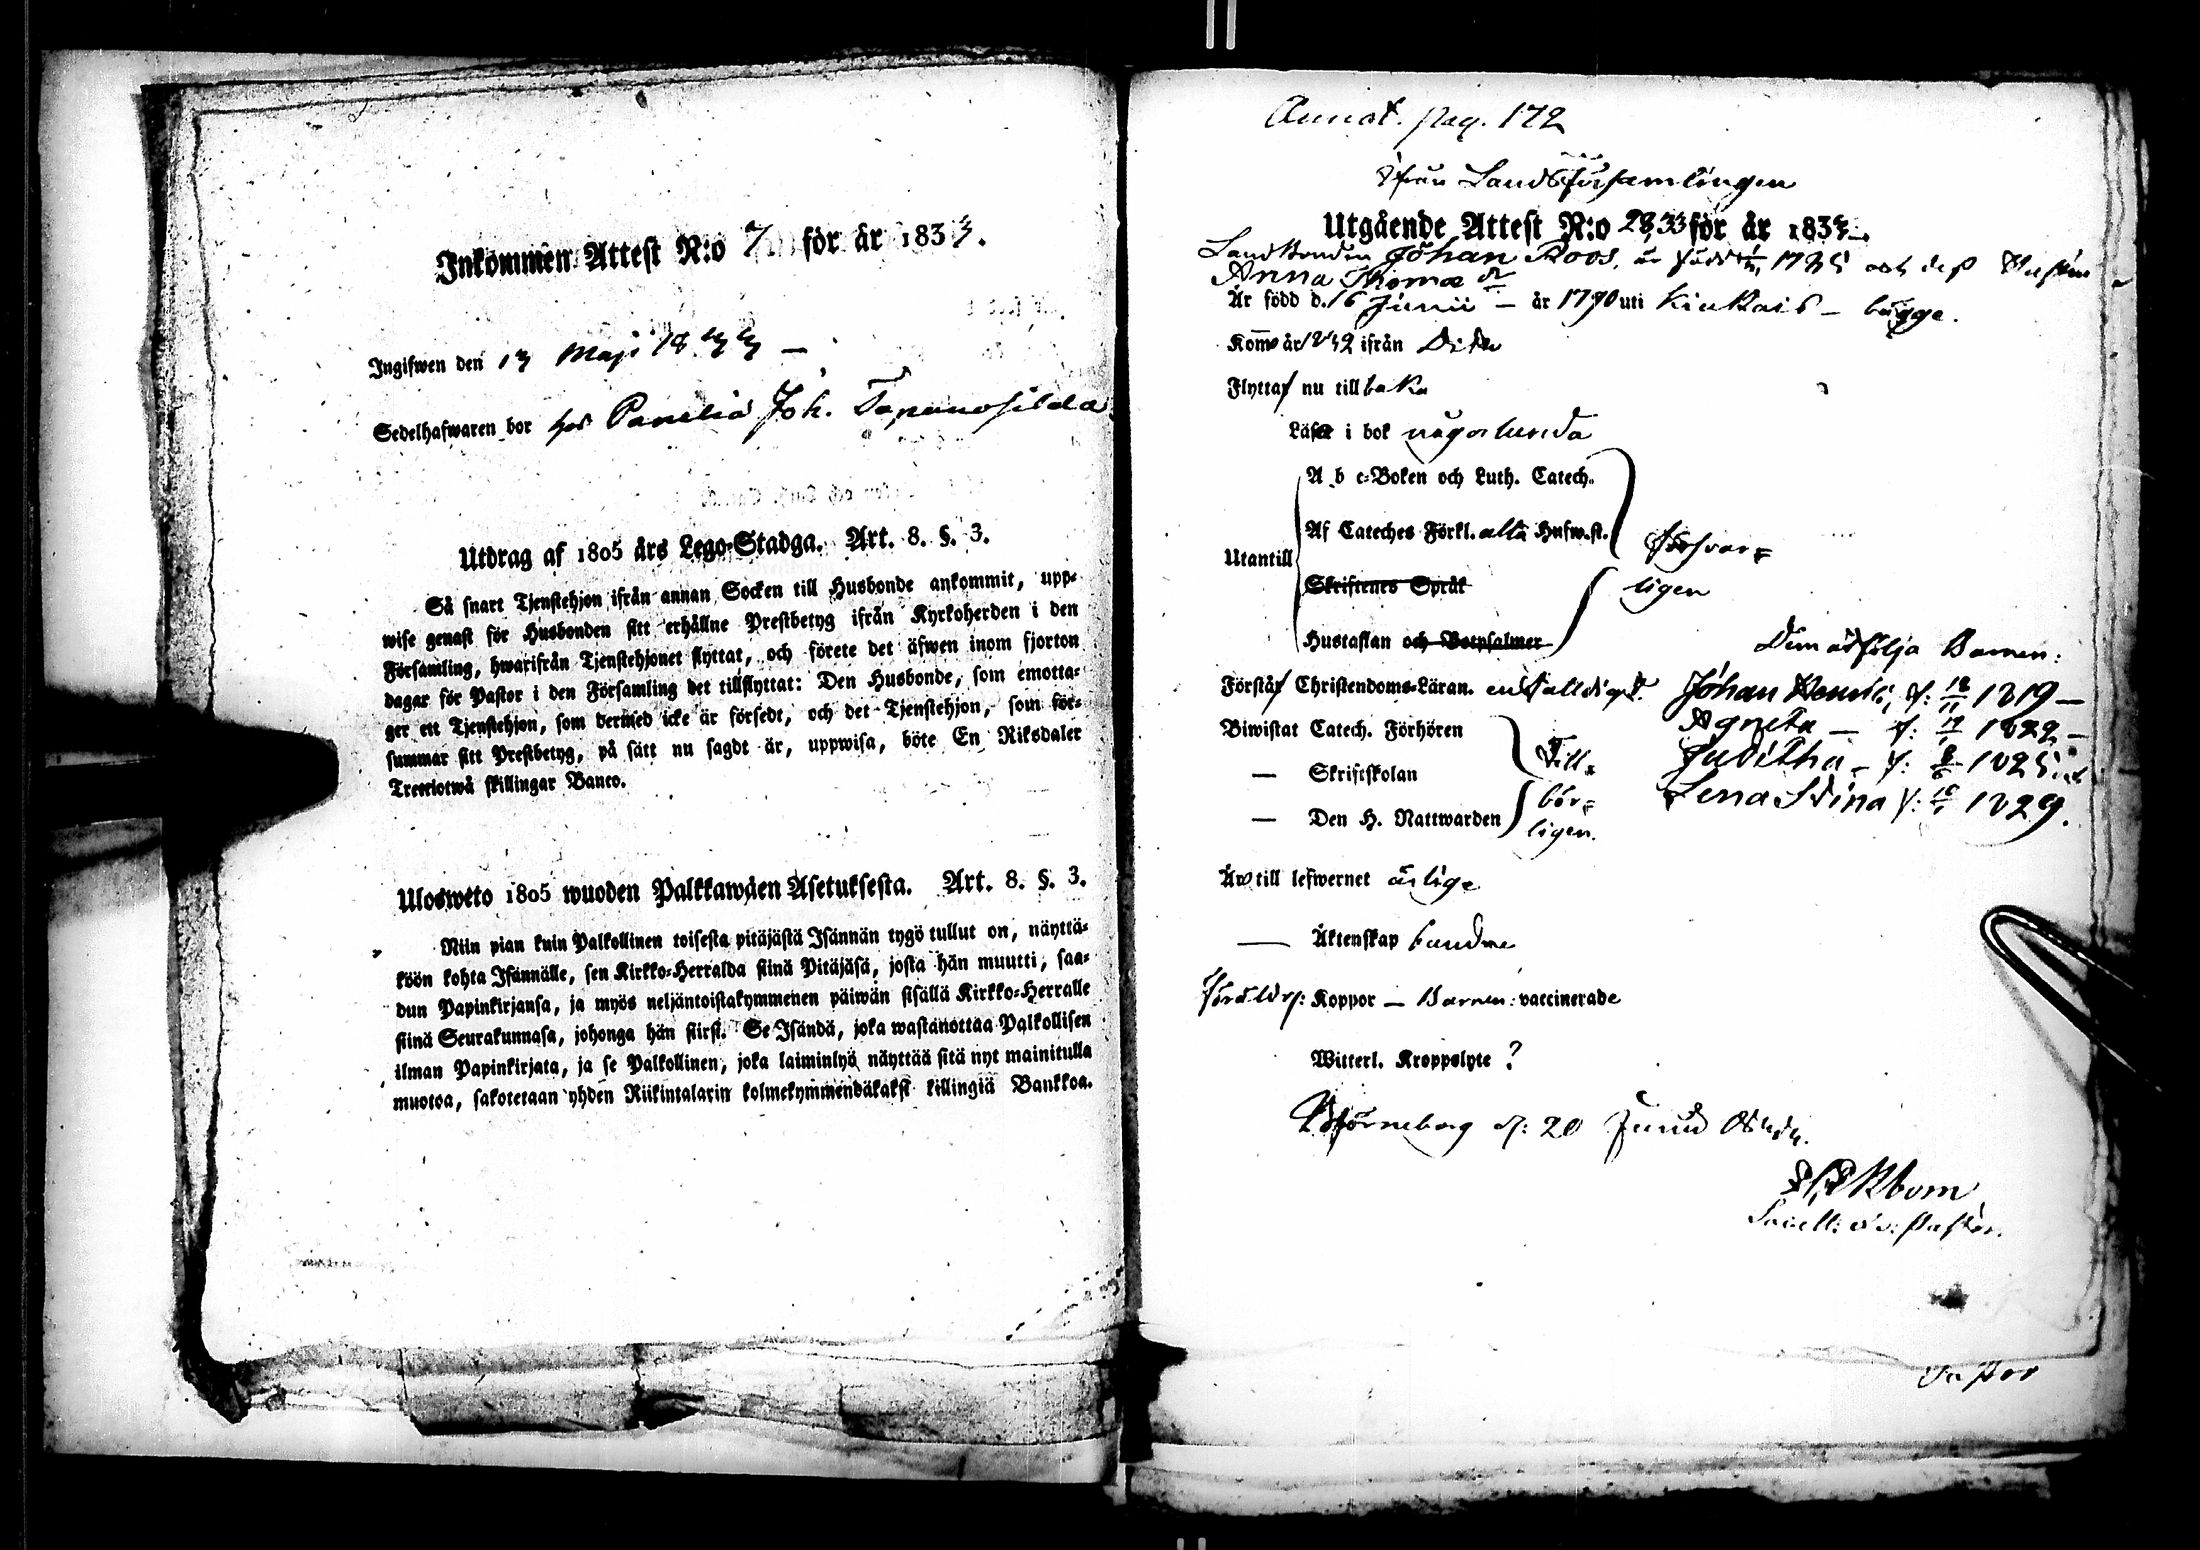 Inkommen Attest N:o 7 för år 1833.
Ingifwen den 13 Maji 1833 —
Sedelhafwaren bor hos Panelia Joh. Tapanosilda
Utdrag af 1805 års Lego-Stadga. Art. 8. §. 3.
Så snart Tjenstehjon ifrån annan Socken till Husbonde ankommit, upp-
wise genast för Husbonden sitt erhållne Prestbetyg ifrån Kyrkoherden i den
Församling, hwarifrån Tjenstehjonet flyttat, och förete det äfwen inom fjorton
dagar för Pastor i den Församling det tillflyttat: Den Husbonde, som emotta-
ger ett Tjenstehjon, som dermed icke är försedt, och det Tjenstehjon, som för-
summar sitt Prestbetyg, på sätt nu sagdt är, uppwisa, böte En Riksdaler
Trettiotwå skillingar Banco.
Uloswето 1805 wuoden Palkkawäen Asetuksesta. Art. 8. §. 3.
Niin pian kuin Palkollinen toisesta pitäjästä Isännän tygö tullut on, näyttä-
köön kohta Isännälle, sen Kirkko-Herralda siinä Pitäjäsä, josta hän muutti, saa-
dun Papinkirjansa, ja myös neljäntoistakymmenen päiwän sisällä Kirkko-Herralle
siinä Seurakunnasa, johonga hän siirsi. Se Isändä, joka wastanottaa Palkollisen
ilman Papinkirjata, ja se Palkollinen, joka laiminlyö näyttää sitä nyt mainitulla
muotoa, sakotetaan yhden Riikintalarin kolmekymmendäkaksi killingiä Bankkoa.
Annot. pag. 172
Ifrån Landsförsamlingen
Utgående Attest N:o 28, 33 för år 1833.
Landbonden Johan Roos, är född 1785 och dess Hustru
Anna Thomæ dr
Är född d. 16 Junii — år 1790 uti Kiukais — bägge.
Kom år 1832 ifrån Dito
Flytta nu tillbaka
Läsa i bok någorlunda
A b c-Boken och Luth. Catech.
Af Cateches Förkl. alla Hufwst.
Utantill
Skriftenes Språk
Hustaflan och Botpsalmer
försvar-
ligen
Dem åtfölja Barnen:
Förstå Christendoms-Läran. enfalldigt.
Johan f: 18/11 1819 —
Agneta — f: 1822 —
Juditha — f: 1825 och
Lena Stina f: 1829.
Biwistat Catech. Förhören
— Skriftskolan
— Den H. Nattwarden
Till-
bör-
ligen.
Äro till lefwernet ärlige
— Äktenskap bundne
Föräldr: Koppor — Barnen: vaccinerade
Witterl. Kroppslyte ?
Björneborg d: 20 Junii 1833.
Ekbom
Pastor.
Pastor